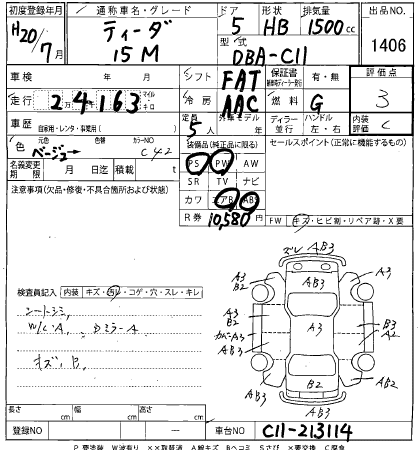 初度登録年月 通称車名・グレード ドア 形状 排気量 出品NO.
H20/7月 ティーダ 15M 5 HB 1500cc 1406
型式 DBA-C11
車検 年 月 シフト FAT 保証書 有・無 評価点 3
走行 24,163 マイル キロ 冷房 AAC 燃料 G 内装評価 C
車歴 自家用・レンタ・事業用( ) 定員 5人 外車モデル 年 ディーラー 並行 ハンドル 左・右
色 元色 ベージュ 色替 カラーNO C42
装備品(純正品に限る) セールスポイント(正常に機能するもの)
PS PW AW
名義変更期限 月 日迄 積載 t SR TV ナビ
注意事項(欠品・修復・不具合箇所および状態) カワ エアB ABS
R券 10,580円
FW キズ・ヒビ割・リペア跡・X要
検査員記入 内装 キズ・汚レ・コゲ・穴・スレ・キレ
シートシミ,
W/L・A, DミラーA
キズ,B,
ズレ AB3
A3 B2 AB3 A3
A3 B2 A3 B3
カバーA3 A2
AB3
B2
AB3 AB2
AB3
長さ cm 幅 cm 高さ cm
登録NO 車台NO C11-213114
P 要塗装 W波有り ××取替済 A線キズ Bヘコミ Sさび ×要交換 C腐食